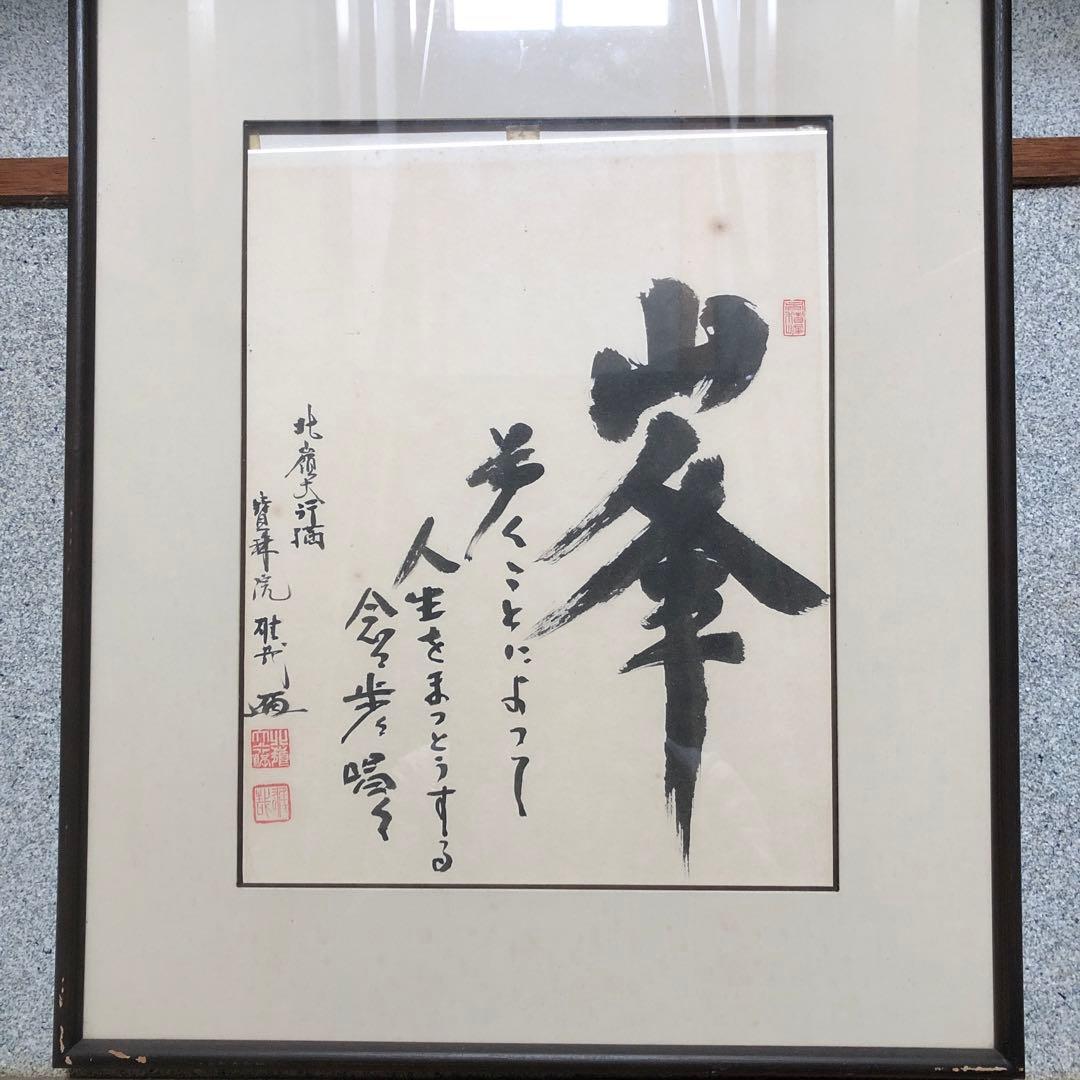 峯
歩くことによって
人生をまっとうする
念々歩々唱々
北嶺大行満
寶珠院